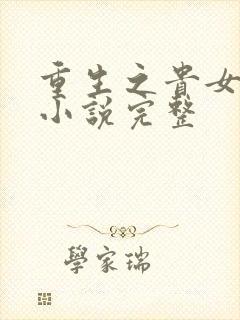 重生之貴女
小說完整
學家瑞